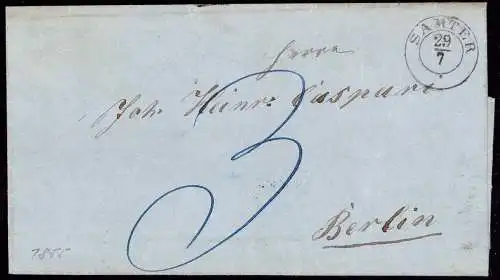 SAMTER
29
7
Herrn
Joh. Heinr. Caspari
3
Berlin
1855